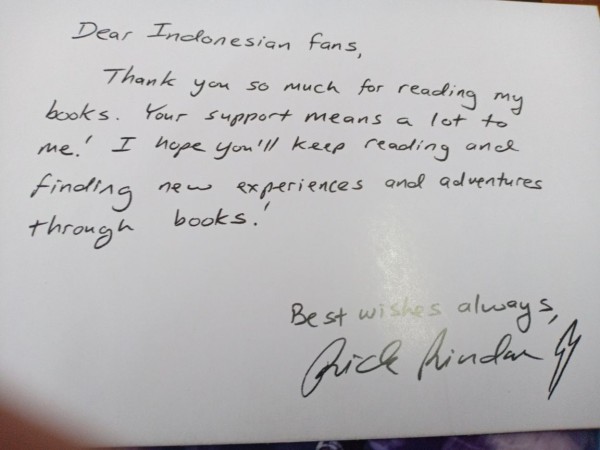 Dear Indonesian fans,
Thank you so much for reading my
books. Your support means a lot to
me! I hope you'll keep reading and
finding new experiences and adventures
through books!
Best wishes always,
Rick Riordan